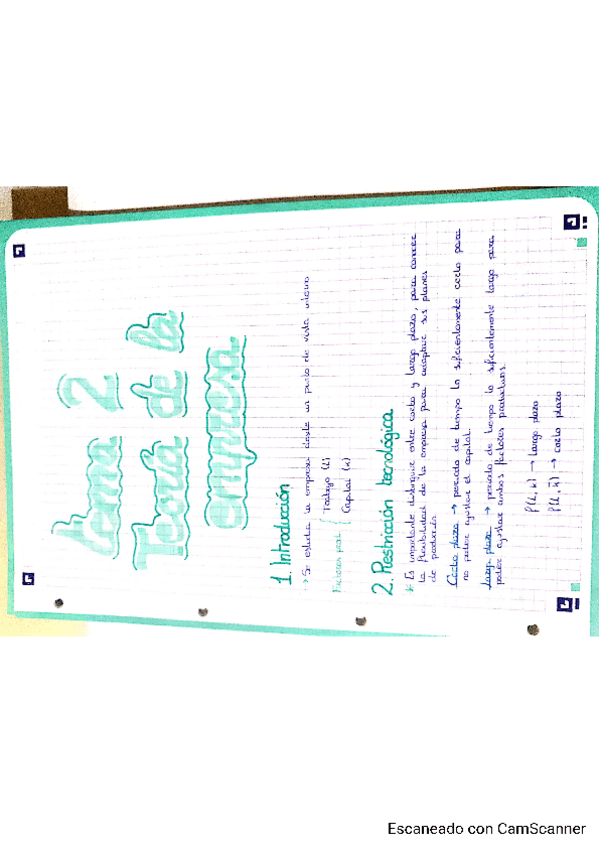 tema 2
Teoría de la
empresa
1. Introducción
Se estudia la empresa desde un punto de vista interno
Factores prod. { Trabajo (L)
Capital (K)
2. Restricción tecnológica
Es importante distinguir entre corto y largo plazo, para conocer
la flexibilidad de la empresa para adaptar sus planes
de producción
Corto plazo → periodo de tiempo lo suficientemente corto para
no poder ajustar el capital.
Largo plazo → periodo de tiempo lo suficientemente largo para
poder ajustar ambos factores productivos.
F(L, K) → largo plazo
F(L, K̄) → corto plazo
Escaneado con CamScanner